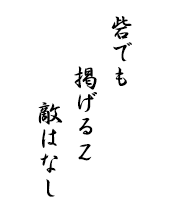 砦でも
掲げるZ
敵はなし